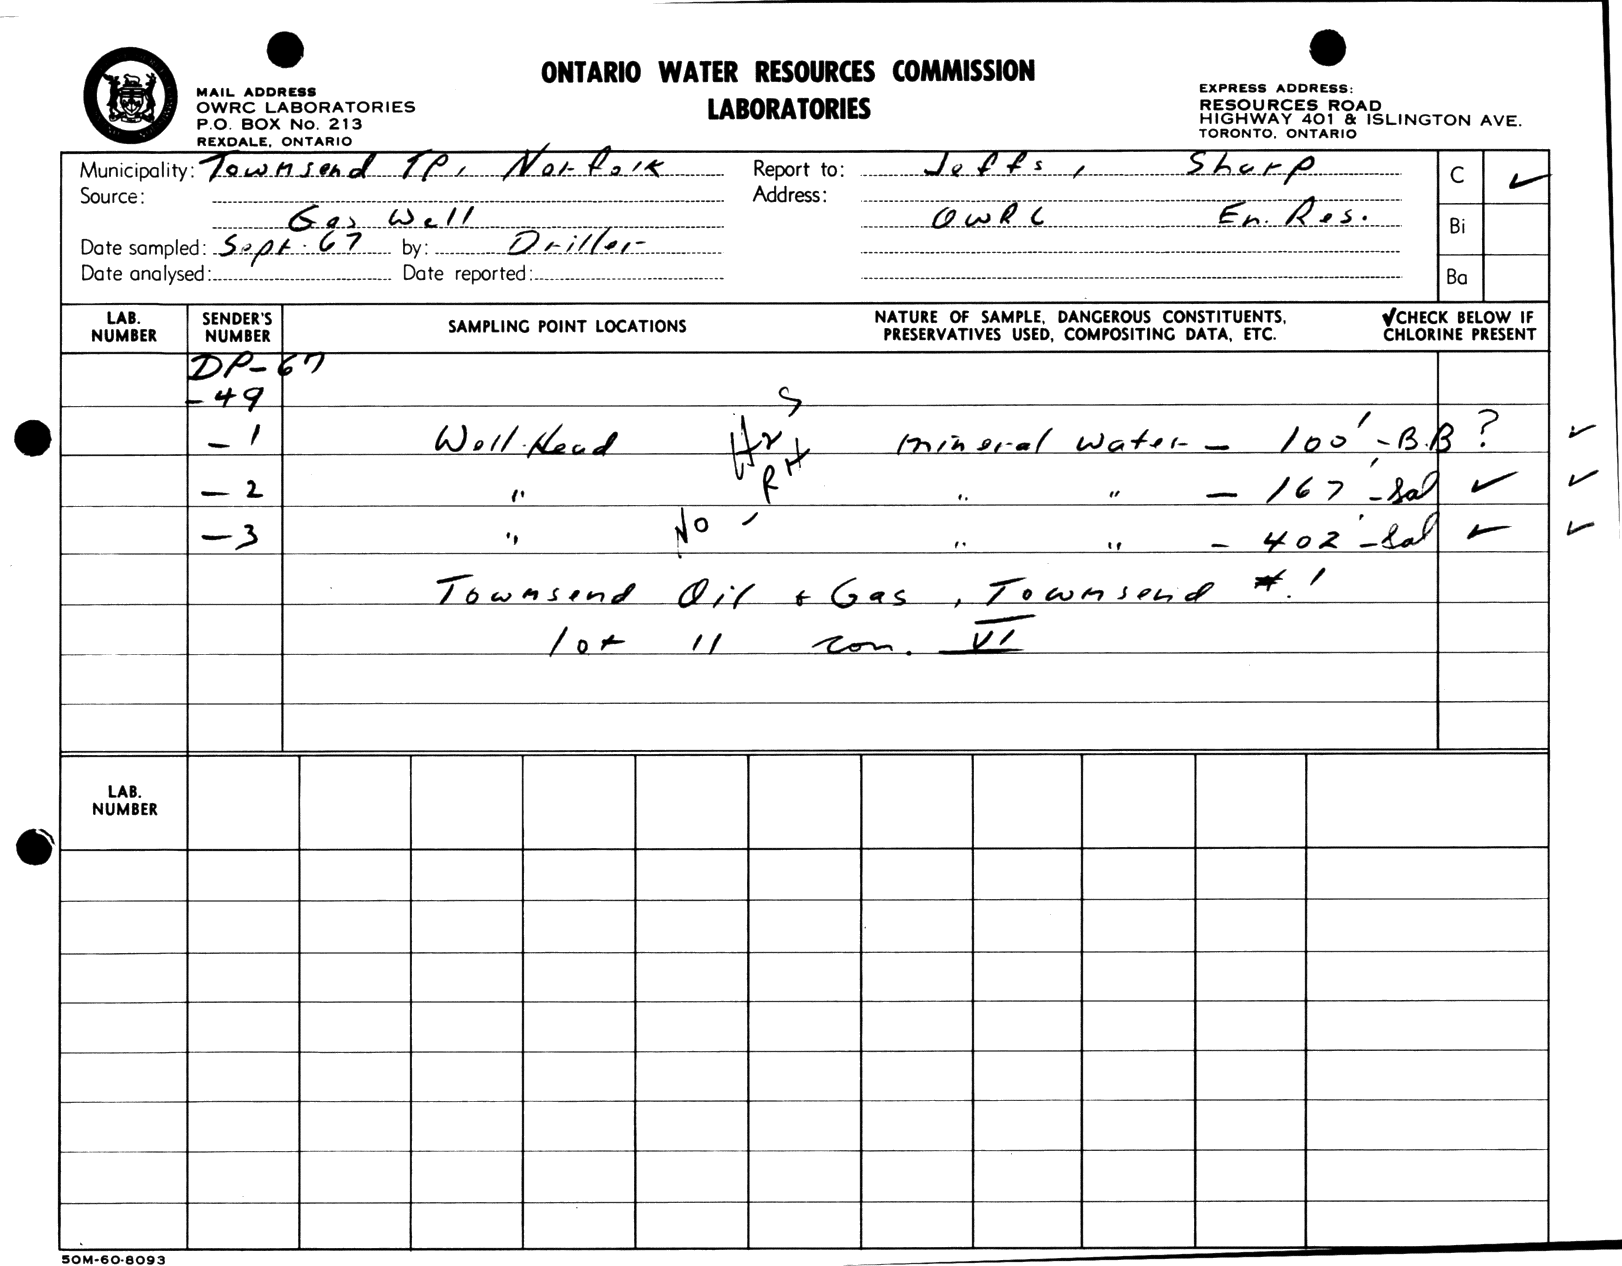 ONTARIO WATER RESOURCES COMMISSION
LABORATORIES
MAIL ADDRESS
OWRC LABORATORIES
P.O. BOX No. 213
REXDALE, ONTARIO
EXPRESS ADDRESS:
RESOURCES ROAD
HIGHWAY 401 & ISLINGTON AVE.
TORONTO, ONTARIO
Municipality: Townsend TP, Norfolk
Source:
Gas Well
Date sampled: Sept. 67 by: Driller
Date analysed: Date reported:
Report to: Jeffs, Sharp
Address:
OWRC En. Res.
C ✓
Bi
Ba
LAB. NUMBER SENDER'S NUMBER SAMPLING POINT LOCATIONS NATURE OF SAMPLE, DANGEROUS CONSTITUENTS, PRESERVATIVES USED, COMPOSITING DATA, ETC. ✓CHECK BELOW IF CHLORINE PRESENT
DP-67
-49
-1 Well-Head mineral water - 100' - B.B ? ✓
-2 " " " - 167' - Sal ✓ ✓
-3 " No - " " - 402' - Sal ✓ ✓
Townsend Oil & Gas, Townsend #1
lot 11 con. VI
LAB. NUMBER
50M-60-8093